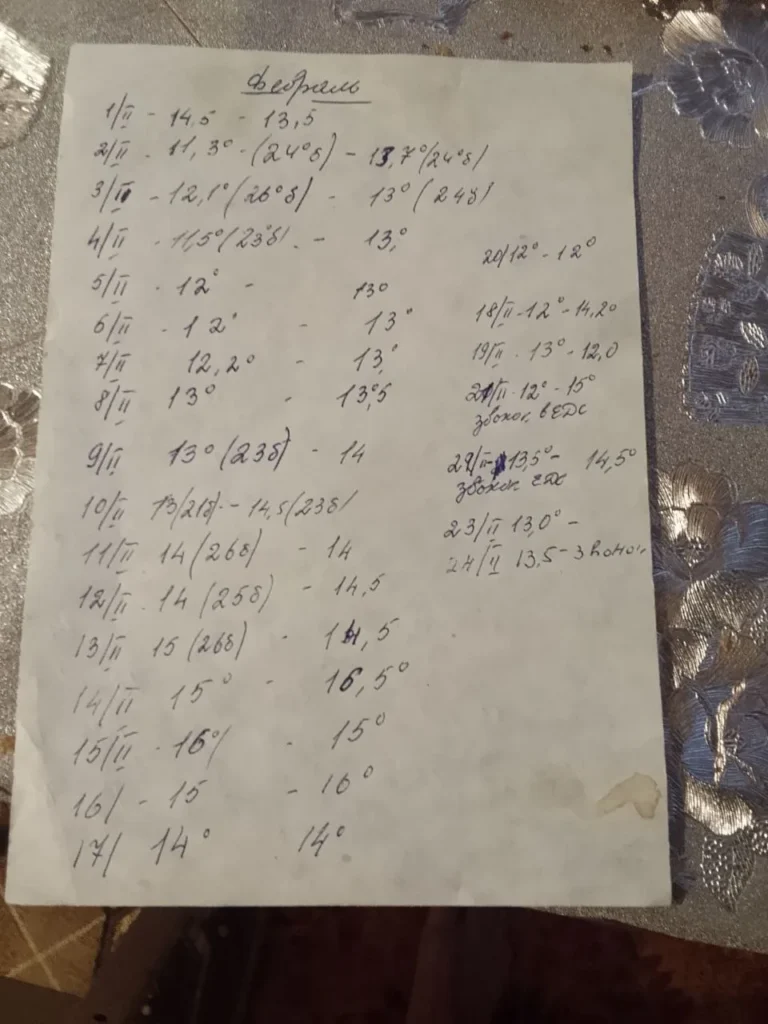 Февраль
1/II - 14.5 - 13,5
2/II - 11,3° - (24°б) - 13,7°(24°б)
3/II - 12,1°(26°б) - 13°(24б)
4/II - 11,5°(23°б) - 13,°
5/II - 12° - 13°
6/II - 12° - 13°
7/II 12,2° - 13,°
8/II 13° - 13°,5
9/II 13°(23б) - 14
10/II 13(21б) - 14,5(23б)
11/II 14(26б) - 14
12/II 14(25б) - 14,5
13/II 15(26б) - 14,5
14/II 15° - 16,5°
15/II - 16° - 15°
16/ - 15 - 16°
17/ 14° 14°
20/12° - 12°
18/II - 12° - 14,2°
19/II - 13° - 12,0
21/II - 12° - 15°
звонок в ЕДС
22/II - 13,5° - 14,5°
звонок ЕДС
23/II 13,0° -
24/II 13,5 - звонок